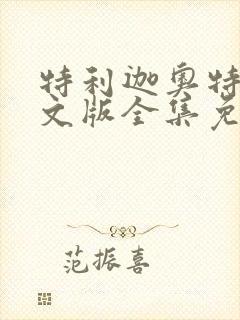 特利迦奥特
文版全集免
范振喜